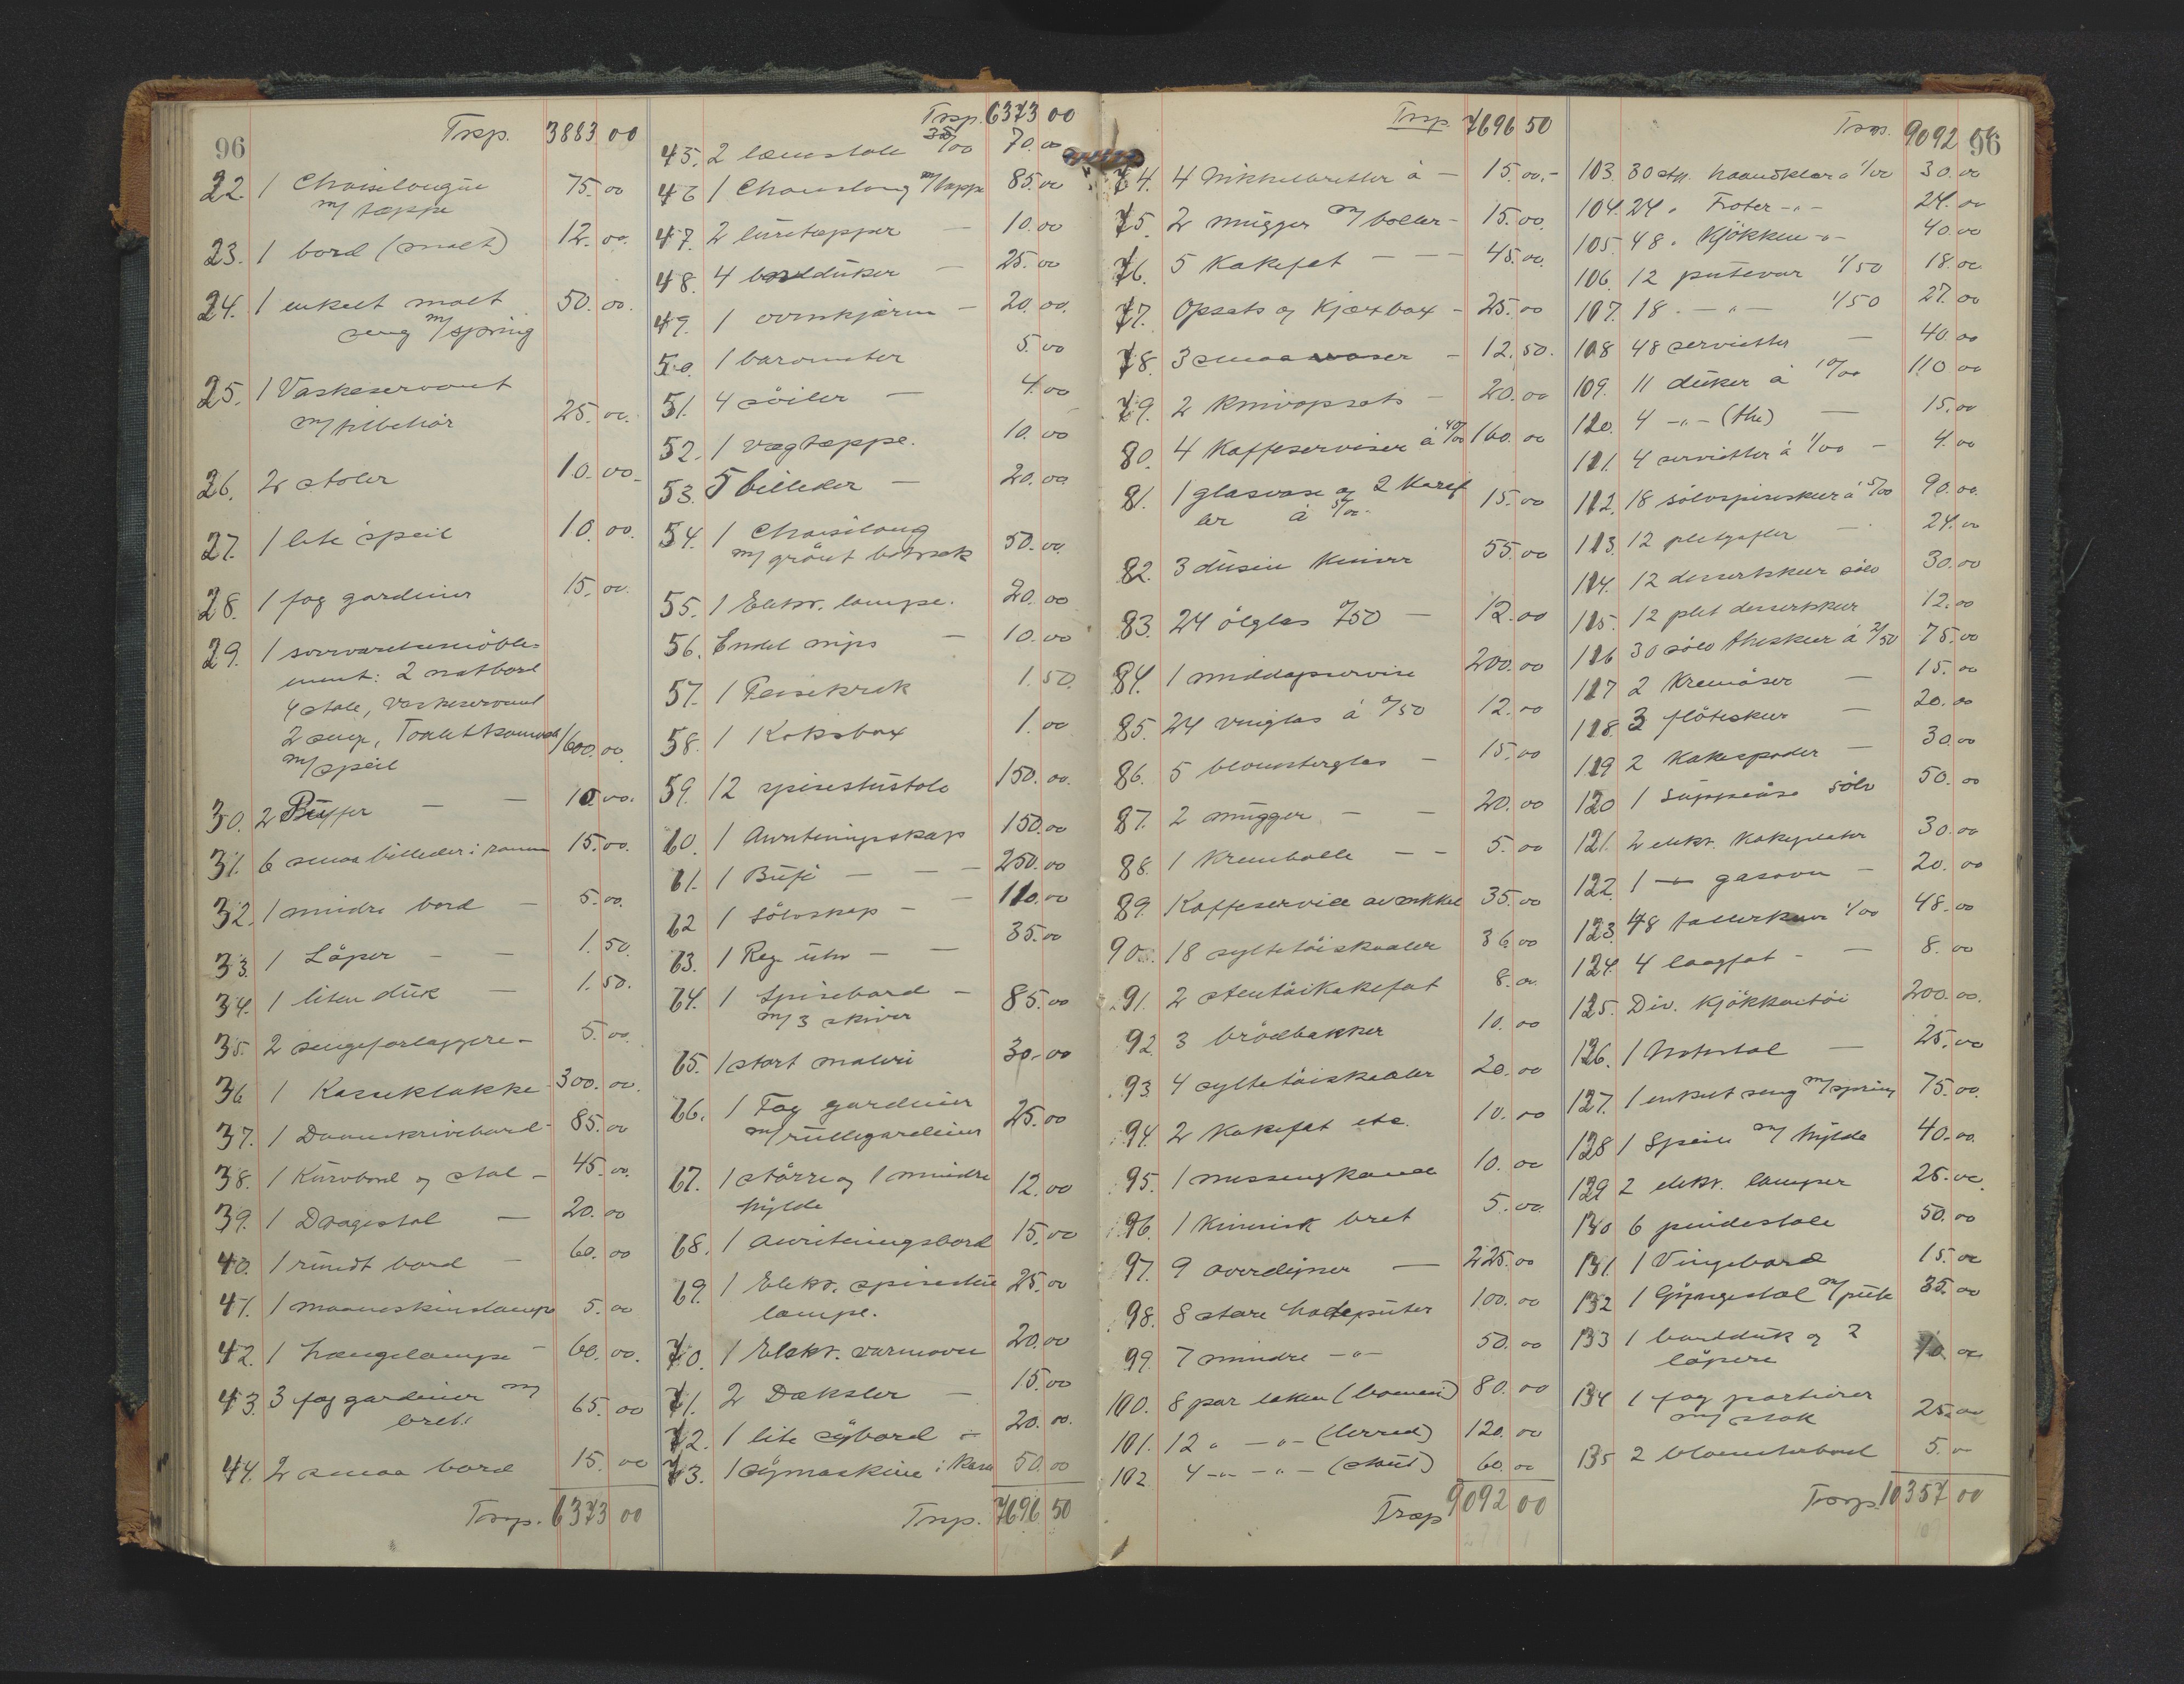 96
Trsp. 3883 00
22. 1 Chaiselongue 75.00
m/ tæppe
23. 1 bord (malt) 12.00
24. 1 enkelt malt 50.00.
seng m/spring
25. 1 Vaskeservant
m/tilbehör 25.00.
26. 2 stoler 10.00.
27. 1 lite speil 10.00.
28. 1 fag gardiner 15.00
29. 1 soverværelsesmöble-
ment: 2 natbord
4 stole, vaskeservant
2 senge, Toalet
m/speil 1600.00.
30. 2 — — 10.00.
31. 6 smaa billeder i ramme 15.00.
32. 1 mindre bord — 5.00.
33. 1 Löper — — 1.50.
34. 1 liten duk — 1.50.
35. 2 sengeforlæggere — 5.00.
36 1 Kasseklokke 300.00.
37. 1 Dameskrivebord 85.00
38. 1 Kurvbord og stol — 45.00.
39. 1 Dragestol — 20.00
40. 1 rundt bord — 60.00
41. 1 maaneskinslampe 5.00
42. 1 hængelampe — 60.00.
43. 3 fag gardiner m/
bret. 65.00
44. 2 smaa bord 15.00
Trsp. 6373 00
Trsp. 6373 00
45. 2 lænstole 35/00 70.00
46 1 Chaiselong m/tæppe 85.00
47. 2 — 10.00
48. 4 bordduker — 25.00
49. 1 ovnskjærm — 20.00.
50. 1 barometer 5.00
51. 4 söiler — 4.00
52. 1 vægtæppe. 10.00
53. 5 billeder — 20.00
54. 1 Chaiselong
m/grönt 50.00.
55. 1 Elektr. lampe. 20.00
56. Endel nips — 10.00
57. 1 Peisekrok 1.50.
58. 1 Koksbox 1.00
59. 12 spisestustole 150.00.
60. 1 Anretningskap 150.00
61. 1 Büfe — — — 250.00
62 1 Sölvskap — — 110.00
63. 1 Reg. uhr — — 35.00
64. 1 Spisebord — 85.00
m/3 skiver
65. 1 stort maleri 30.00
66. 1 Fag gardiner
m/rullegardiner 25.00
67. 1 större og 1 mindre 12.00
hylde
68. 1 anretningsbord 15.00
69. 1 Elektr. spisestue 25.00
lampe.
70. 1 Elektr. varmeovn 20.00
71. 2 Dæksler — 15.00
72. 1 lite sybord — 20.00.
73. 1 symaskine i kasse 50.00
Trsp. 7696 50
Trsp. 7696 50
74. 4 Nikkelbretter á — 15.00.-
75. 2 mugger m/boller — 15.00.
76. 5 Kakefat — — — 45.00.
77. Opsats og Kjæxbox — 25.00
78. 3 smaa vaser — 12.50.
79. 2 Knivopsats — 20.00
80. 4 Kaffeserviser á 40/00 160.00
81. 1 glasvase og 2 Karaf
ler á 5/00. 15.00
82. 3 dusin Kniver 55.00
83. 24 ölglas 0/50 — 12.00
84. 1 middagservise 200.00
85. 24 vinglas á 0/50 12.00
86. 5 blomsterglas — 15.00
87. 2 mugger — — 20.00
88. 1 Krembolle — — 5.00
89. Kaffeservice av nikkel 35.00
90. 18 syltetöiskaaler 36.00
91. 2 stentöi Kakefat 8.00.
92. 3 brödbakker 10.00
93. 4 syltetöiskaaler 20.00
94. 2 Kakefat etc. 10.00
95. 1 messingkande 10.00
96. 1 Kinesisk bret 5.00.
97. 9 overdyner — 225.00
98. 8 store hodeputer 100.00
99. 7 mindre —"— 50.00
100. 8 par laken 80.00
101. 12 " —"— (lerred) 120.00
102. 4 —"— —"— 60.00
Trsp 9092 00
96
Trsp. 9092 00
103. 30 stk. haandklær á 1/00 30.00
104. 24 " Froter —"— 24.00
105. 48 " Kjökken —"— 40.00
106. 12 putevar 1/50 18.00
107. 18 " —"— 1/50 27.00
108 48 servietter — 40.00
109. 11 duker á 10/00 110.00
110. 4 —"— (the) — 15.00
111. 4 servietter á 1/00 — 4.00
112. 18 sölvspiseskeer á 5/00 90.00.
113. 12 pletgafler — 24.00
114. 12 dessertskeer sölv 30.00
115. 12 plet dessertskeer 12.00
116 30 sölv theskeer á 2/50 75.00
117 2 Kremöser — 15.00
118. 3 flöteskeer — 20.00
119 2 Kakespader — 30.00
120 1 Suppeöse sölv 50.00
121. 2 elektr. Kokeplater 30.00
122. 1 —"— gasovn — 20.00
123. 48 tallerkener 1/00 48.00
124. 4 laagfat — — 8.00
125. Div. Kjökkentöi 200.00.
126. 1 — 25.00
127. 1 enkelt seng m/spring 75.00.
128 1 Speil m/ hylde 40.00.
129 2 elektr. lamper 25.00.
130 6 pindestole 50.00
131. 1 Vingebord 15.00
132 1 Gyngestol m/pute 35.00
133 1 bordduk og 2
löpere 10.00
134 1 fag portierer
m/ stok 25.00
135 2 blomsterbord 5.00
Trsp. 10357 00